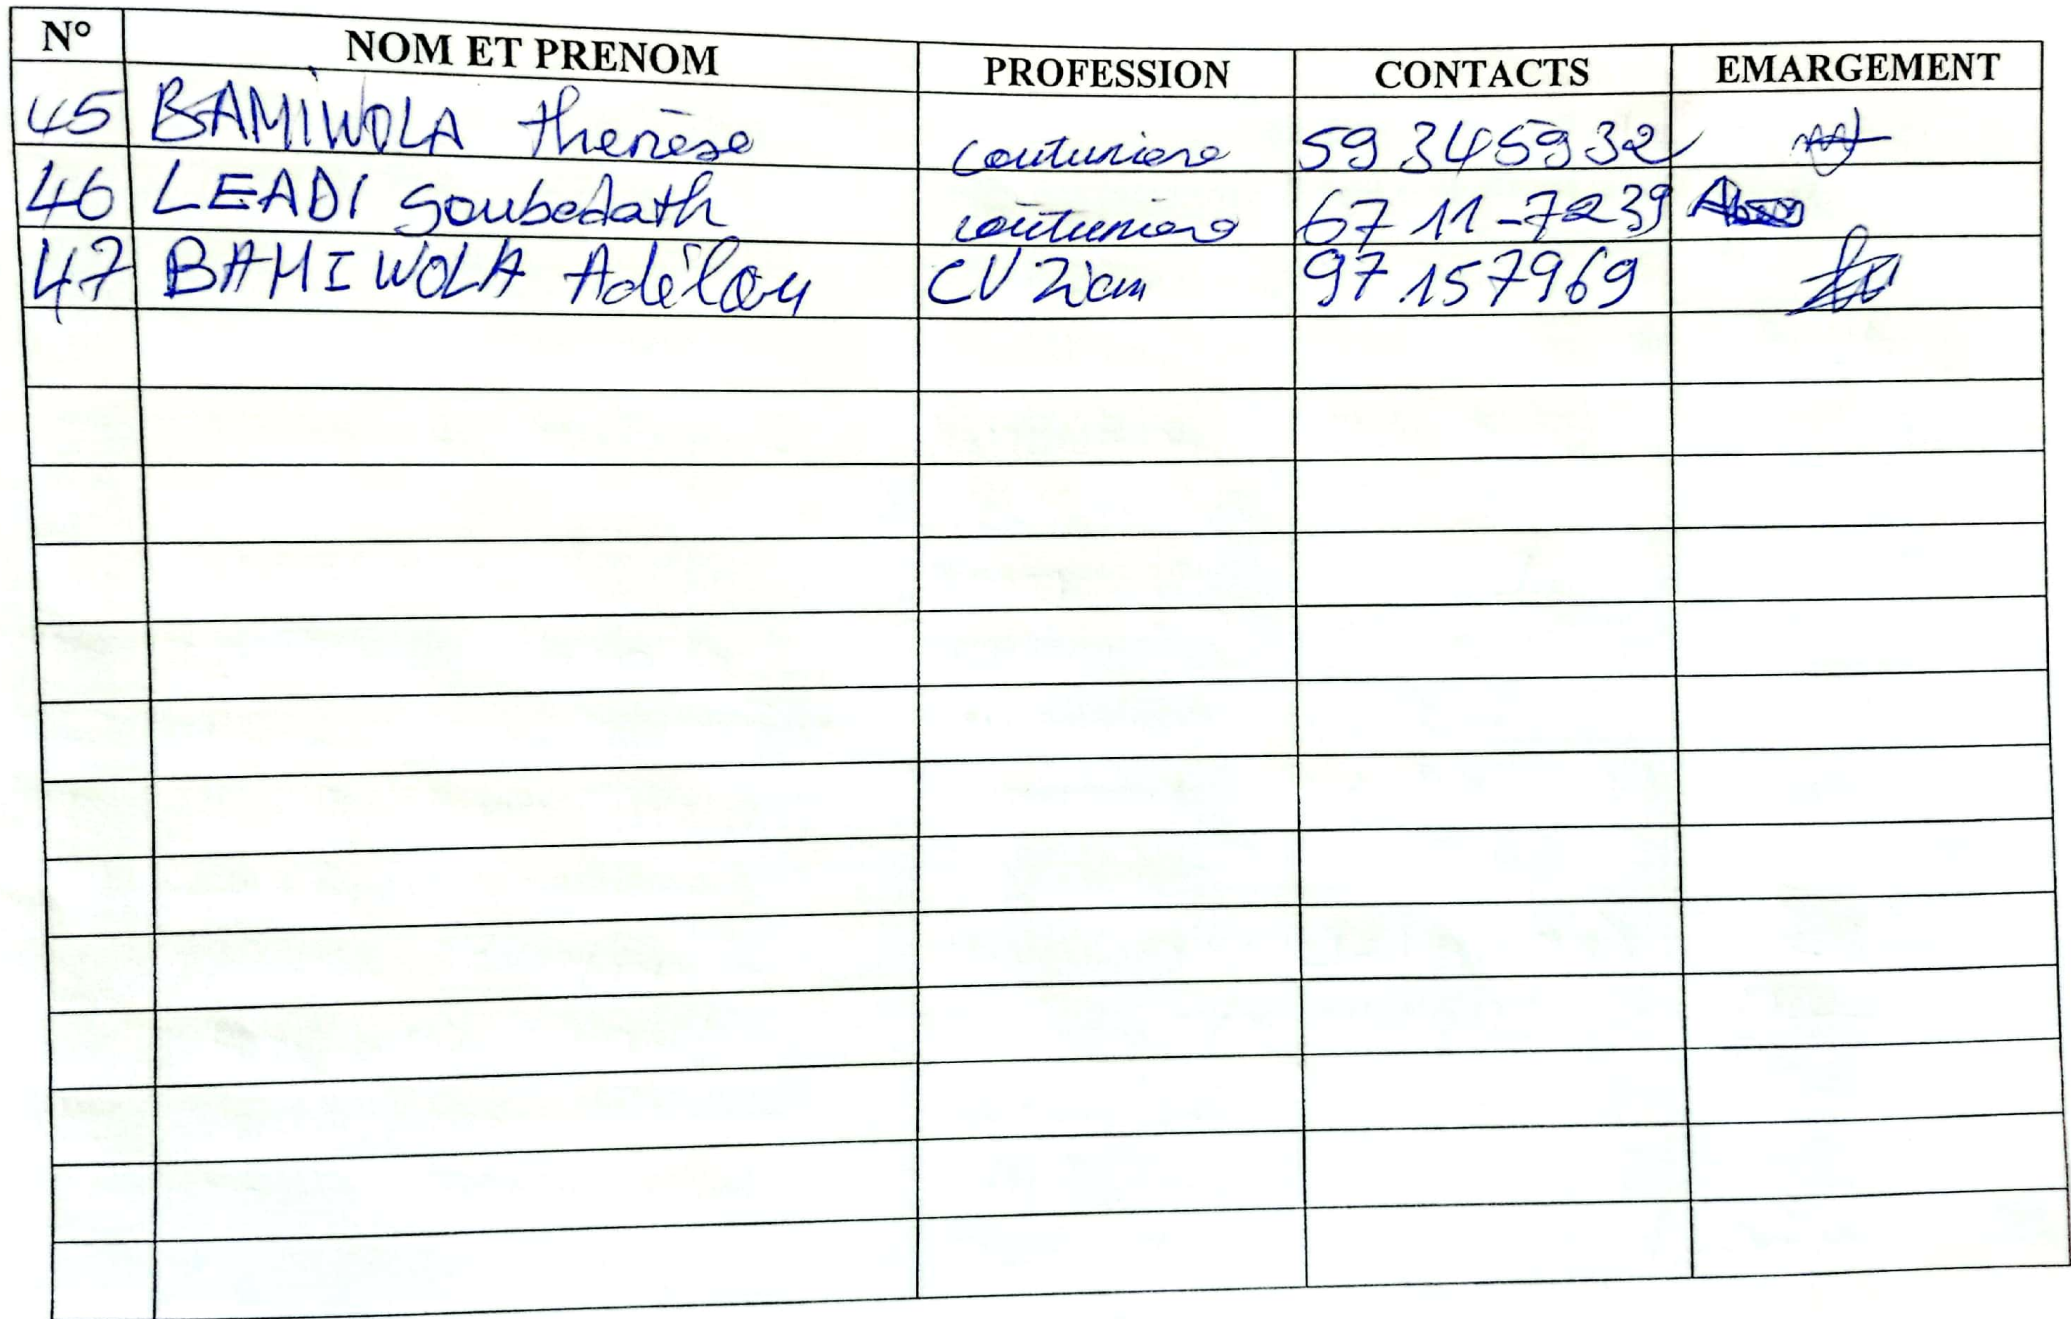 N° NOM ET PRENOM PROFESSION CONTACTS EMARGEMENT
45 BAMIWOLA thérèse couturiere 59 345932
46 LEADI Soubedath couturiere 67 11-7239
47 BAMIWOLA CV 97 157969